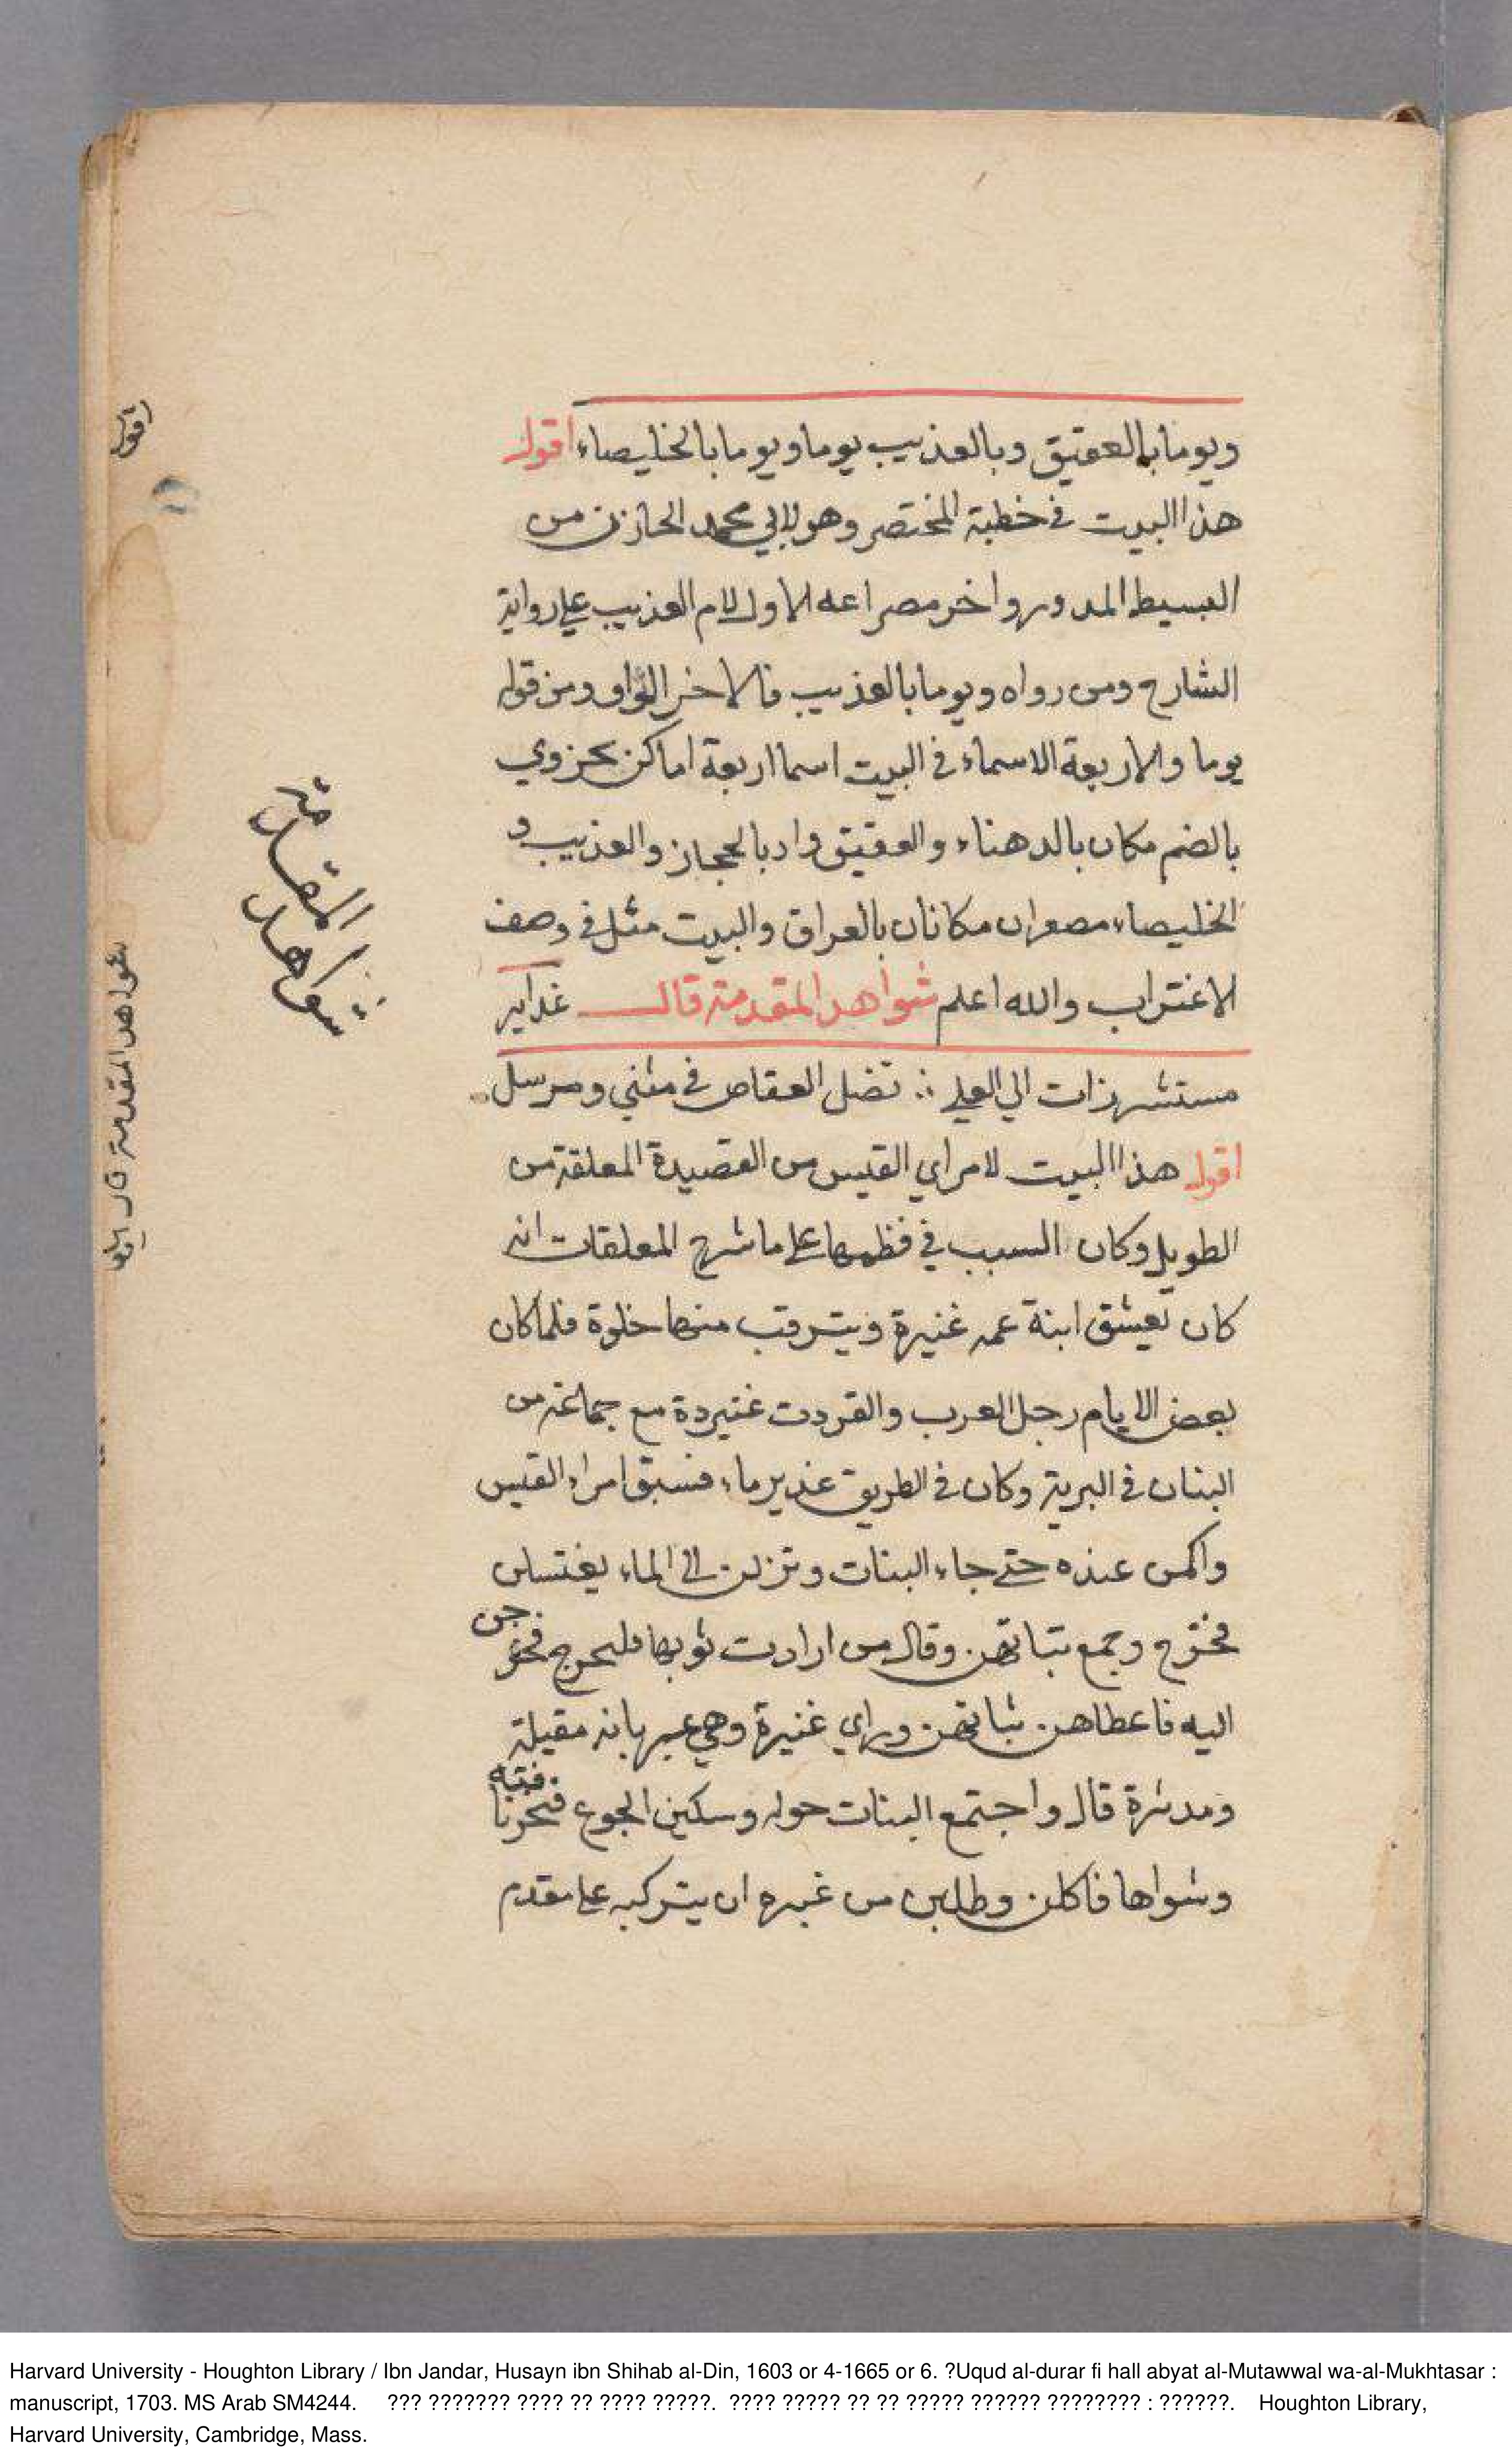 ويوما بالعقيق وبالعذيب يوما ويوما بالخليصاء اقول
هذا البيت في خطبة المختصر وهو لابي محمد الخازن من
البسيط المدور واخر مصراعه الاول لام العذيب علي رواية
الشارح ومن رواه ويوما بالعذيب فالاخر الواو ومن قوله
يوما والاربعة الاسماء في البيت اسما اربعة اماكن بحزوي
بالضم مكان بالدهناء والعقيق واد بالحجاز والعذيب و
الخليصاء مصغران مكانان بالعراق والبيت مثل في وصف
الاغتراب والله اعلم شواهد المقدمة قال غداير
مستشزرات الي العلي ∴ تضل العقاص في مثني ومرسل
اقول هذا البيت لامراي القيس من القصيدة المعلقة من
الطويل وكان السبب في نظمها علي ما شرح المعلقات انه
كان تعشق ابنة عمه غنيزة ويترقب منها خلوة فلما كان
بعض الايام رحل العرب والقردت غنيزدة مع جماعة من
البنات في البرية وكان في الطريق غدير ماء فسبق امراء القيس
واكمن عنده حتي جاء البنات ونزلن الي الماء يغتسلن
فخرج وجمع ثيابهن وقال من ارادت ثوبها فليخرج فخر
جن
اليه فاعطاهن ثيابهن وراي غنيزة وهي مقبلة
ومدبرة قال واجتمع البنات حوله وسكين الجوع فنحرنا
فته
وشواها فاكلن وطلبن من ان يتركبه علي مقدم
شواهد المقدمة
اقول
شواهد المقدمة قال اقول
Harvard University - Houghton Library / Ibn Jandar, Husayn ibn Shihab al-Din, 1603 or 4-1665 or 6. ?Uqud al-durar fi hall abyat al-Mutawwal wa-al-Mukhtasar :
manuscript, 1703. MS Arab SM4244. ??? ??????? ???? ?? ???? ?????. ???? ????? ?? ?? ????? ?????? ???????? : ??????. Houghton Library,
Harvard University, Cambridge, Mass.